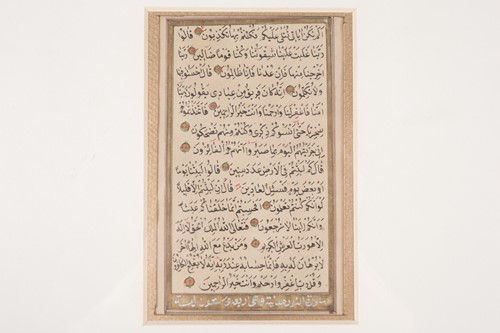 الم تكن اياتى تتلى عليكم فكنتم بها تكذبون قالوا
ربنا غلبت علينا شقوتنا وكنا قوما ضالين ربنا
اخرجنا منها فان عدنا فانا ظالمون قال اخسئوا فيها
ولا تكلمون انه كان فريق من عبادى يقولون ربنا
امنا فاغفر لنا وارحمنا وانت خير الراحمين فاتخذتموهم
سخريا حتى انسوكم ذكرى وكنتم منهم تضحكون
انى جزيتهم اليوم بما صبروا انهم هم الفائزون
قال كم لبثتم فى الارض عدد سنين قالوا لبثنا يوما
او بعض يوم فسئل العادين قال ان لبثتم الا قليلا
لو انكم كنتم تعلمون افحسبتم انما خلقناكم عبثا
وانكم الينا لا ترجعون فتعالى الله الملك الحق لا اله
الا هو رب العرش الكريم ومن يدع مع الله الها اخر
لا برهان له به فانما حسابه عند ربه انه لا يفلح الكافرون
وقل رب اغفر وارحم وانت خير الراحمين
سورة النور مدنية وهى اربع وستون اية